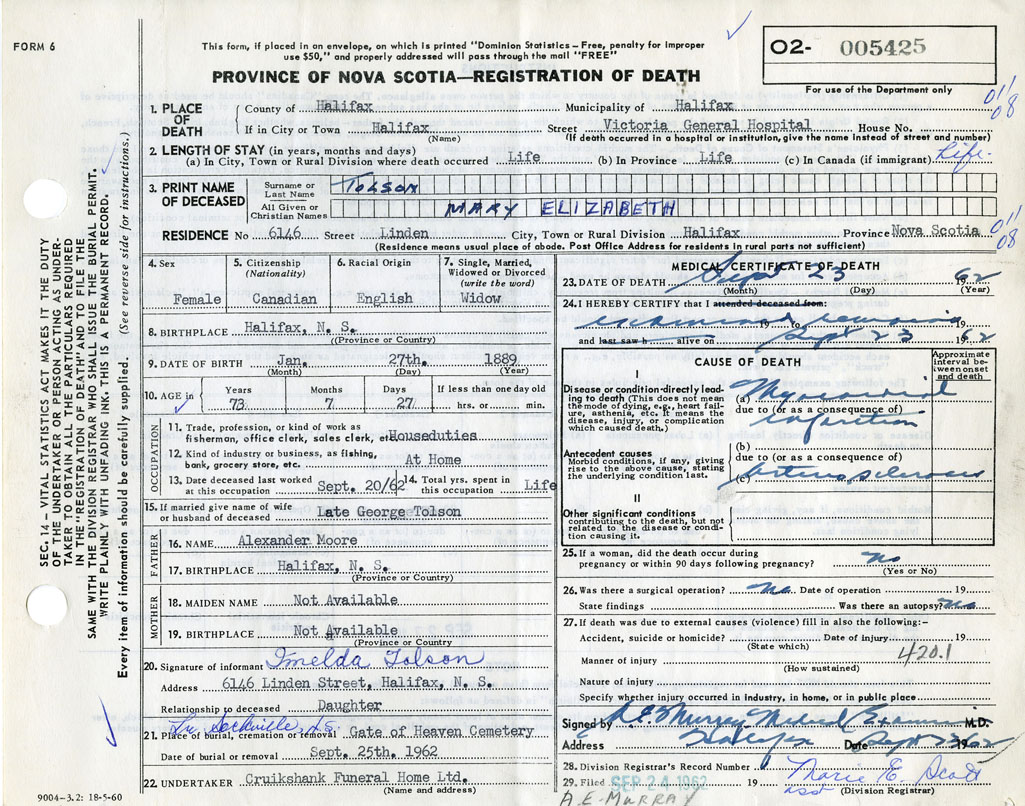 FORM 6
This form, if placed in an envelope, on which is printed "Dominion Statistics – Free, penalty for improper
use $50," and properly addressed will pass through the mail "FREE"
PROVINCE OF NOVA SCOTIA—REGISTRATION OF DEATH
02- 005425
For use of the Department only
SEC. 14 – VITAL STATISTICS ACT MAKES IT THE DUTY
OF THE UNDERTAKER OR PERSON ACTING AS UNDER-
TAKER TO OBTAIN ALL THE PARTICULARS REQUIRED
IN THE "REGISTRATION OF DEATH" AND TO FILE THE
SAME WITH THE DIVISION REGISTRAR WHO SHALL ISSUE THE BURIAL PERMIT.
WRITE PLAINLY WITH UNFADING INK. THIS IS A PERMANENT RECORD.
Every item of information should be carefully supplied. (See reverse side for instructions.)
1. PLACE OF DEATH County of Halifax Municipality of Halifax
01/08
If in City or Town Halifax Street Victoria General Hospital House No.
(Name) (If death occurred in a hospital or institution, give the name instead of street and number)
2. LENGTH OF STAY (in years, months and days)
(a) In City, Town or Rural Division where death occurred Life (b) In Province Life (c) In Canada (if immigrant) Life-
3. PRINT NAME OF DECEASED Surname or Last Name TOLSON
All Given or Christian Names MARY ELIZABETH
RESIDENCE No 6146 Street Linden City, Town or Rural Division Halifax Province Nova Scotia
01/08
(Residence means usual place of abode. Post Office Address for residents in rural parts not sufficient)
4. Sex 5. Citizenship (Nationality) 6. Racial Origin 7. Single, Married, Widowed or Divorced (write the word)
Female Canadian English Widow
8. BIRTHPLACE Halifax, N. S.
(Province or Country)
9. DATE OF BIRTH Jan. 27th. 1889
(Month) (Day) (Year)
10. AGE in Years Months Days If less than one day old
73 7 27 hrs. or min.
OCCUPATION
11. Trade, profession, or kind of work as
fisherman, office clerk, sales clerk, etc Houseduties
12. Kind of industry or business, as fishing,
bank, grocery store, etc. At Home
13. Date deceased last worked at this occupation Sept. 20/62 14. Total yrs. spent in this occupation Life
15. If married give name of wife
or husband of deceased Late George Tolson
FATHER
16. NAME Alexander Moore
17. BIRTHPLACE Halifax, N. S.
(Province or Country)
MOTHER
18. MAIDEN NAME Not Available
19. BIRTHPLACE Not Available
(Province or Country
20. Signature of informant Imelda Tolson
Address 6146 Linden Street, Halifax, N. S.
Relationship to deceased Daughter
Sackville, N.S.
21. Place of burial, cremation or removal Gate of Heaven Cemetery
Date of burial or removal Sept. 25th. 1962
22. UNDERTAKER Cruikshank Funeral Home Ltd.
(Name and address)
9004-3.2: 18-5-60
MEDICAL CERTIFICATE OF DEATH
23. DATE OF DEATH Sept 23 62
(Month) (Day) (Year)
24. I HEREBY CERTIFY that I attended deceased from:
examined remains 19 to 19
and last saw h alive on Sept 23 1962
CAUSE OF DEATH
Approximate interval between onset and death
I
Disease or condition directly leading to death (This does not mean
the mode of dying, e.g., heart failure, asthenia, etc. It means the
disease, injury, or complication which caused death.)
(a) Myocardial
due to (or as a consequence of)
infarction
Antecedent causes
Morbid conditions, if any, giving
rise to the above cause, stating
the underlying condition last.
(b)
due to (or as a consequence of)
(c) Arteriosclerosis
II
Other significant conditions
contributing to the death, but not
related to the disease or condition causing it.
25. If a woman, did the death occur during
pregnancy or within 90 days following pregnancy? no
(Yes or No)
26. Was there a surgical operation? no. Date of operation 19
State findings Was there an autopsy? no
27. If death was due to external causes (violence) fill in also the following:–
Accident, suicide or homicide? Date of injury 19
(State which)
420.1
Manner of injury
(How sustained)
Nature of injury
Specify whether injury occurred in industry, in home, or in public place
Signed by Murray Medical Examiner M.D.
Address Halifax Date Sept 23 1962
28. Division Registrar's Record Number
29. Filed SEP 24 1962 19 Marie E. Scott
asst (Division Registrar)
A.E. MURRAY